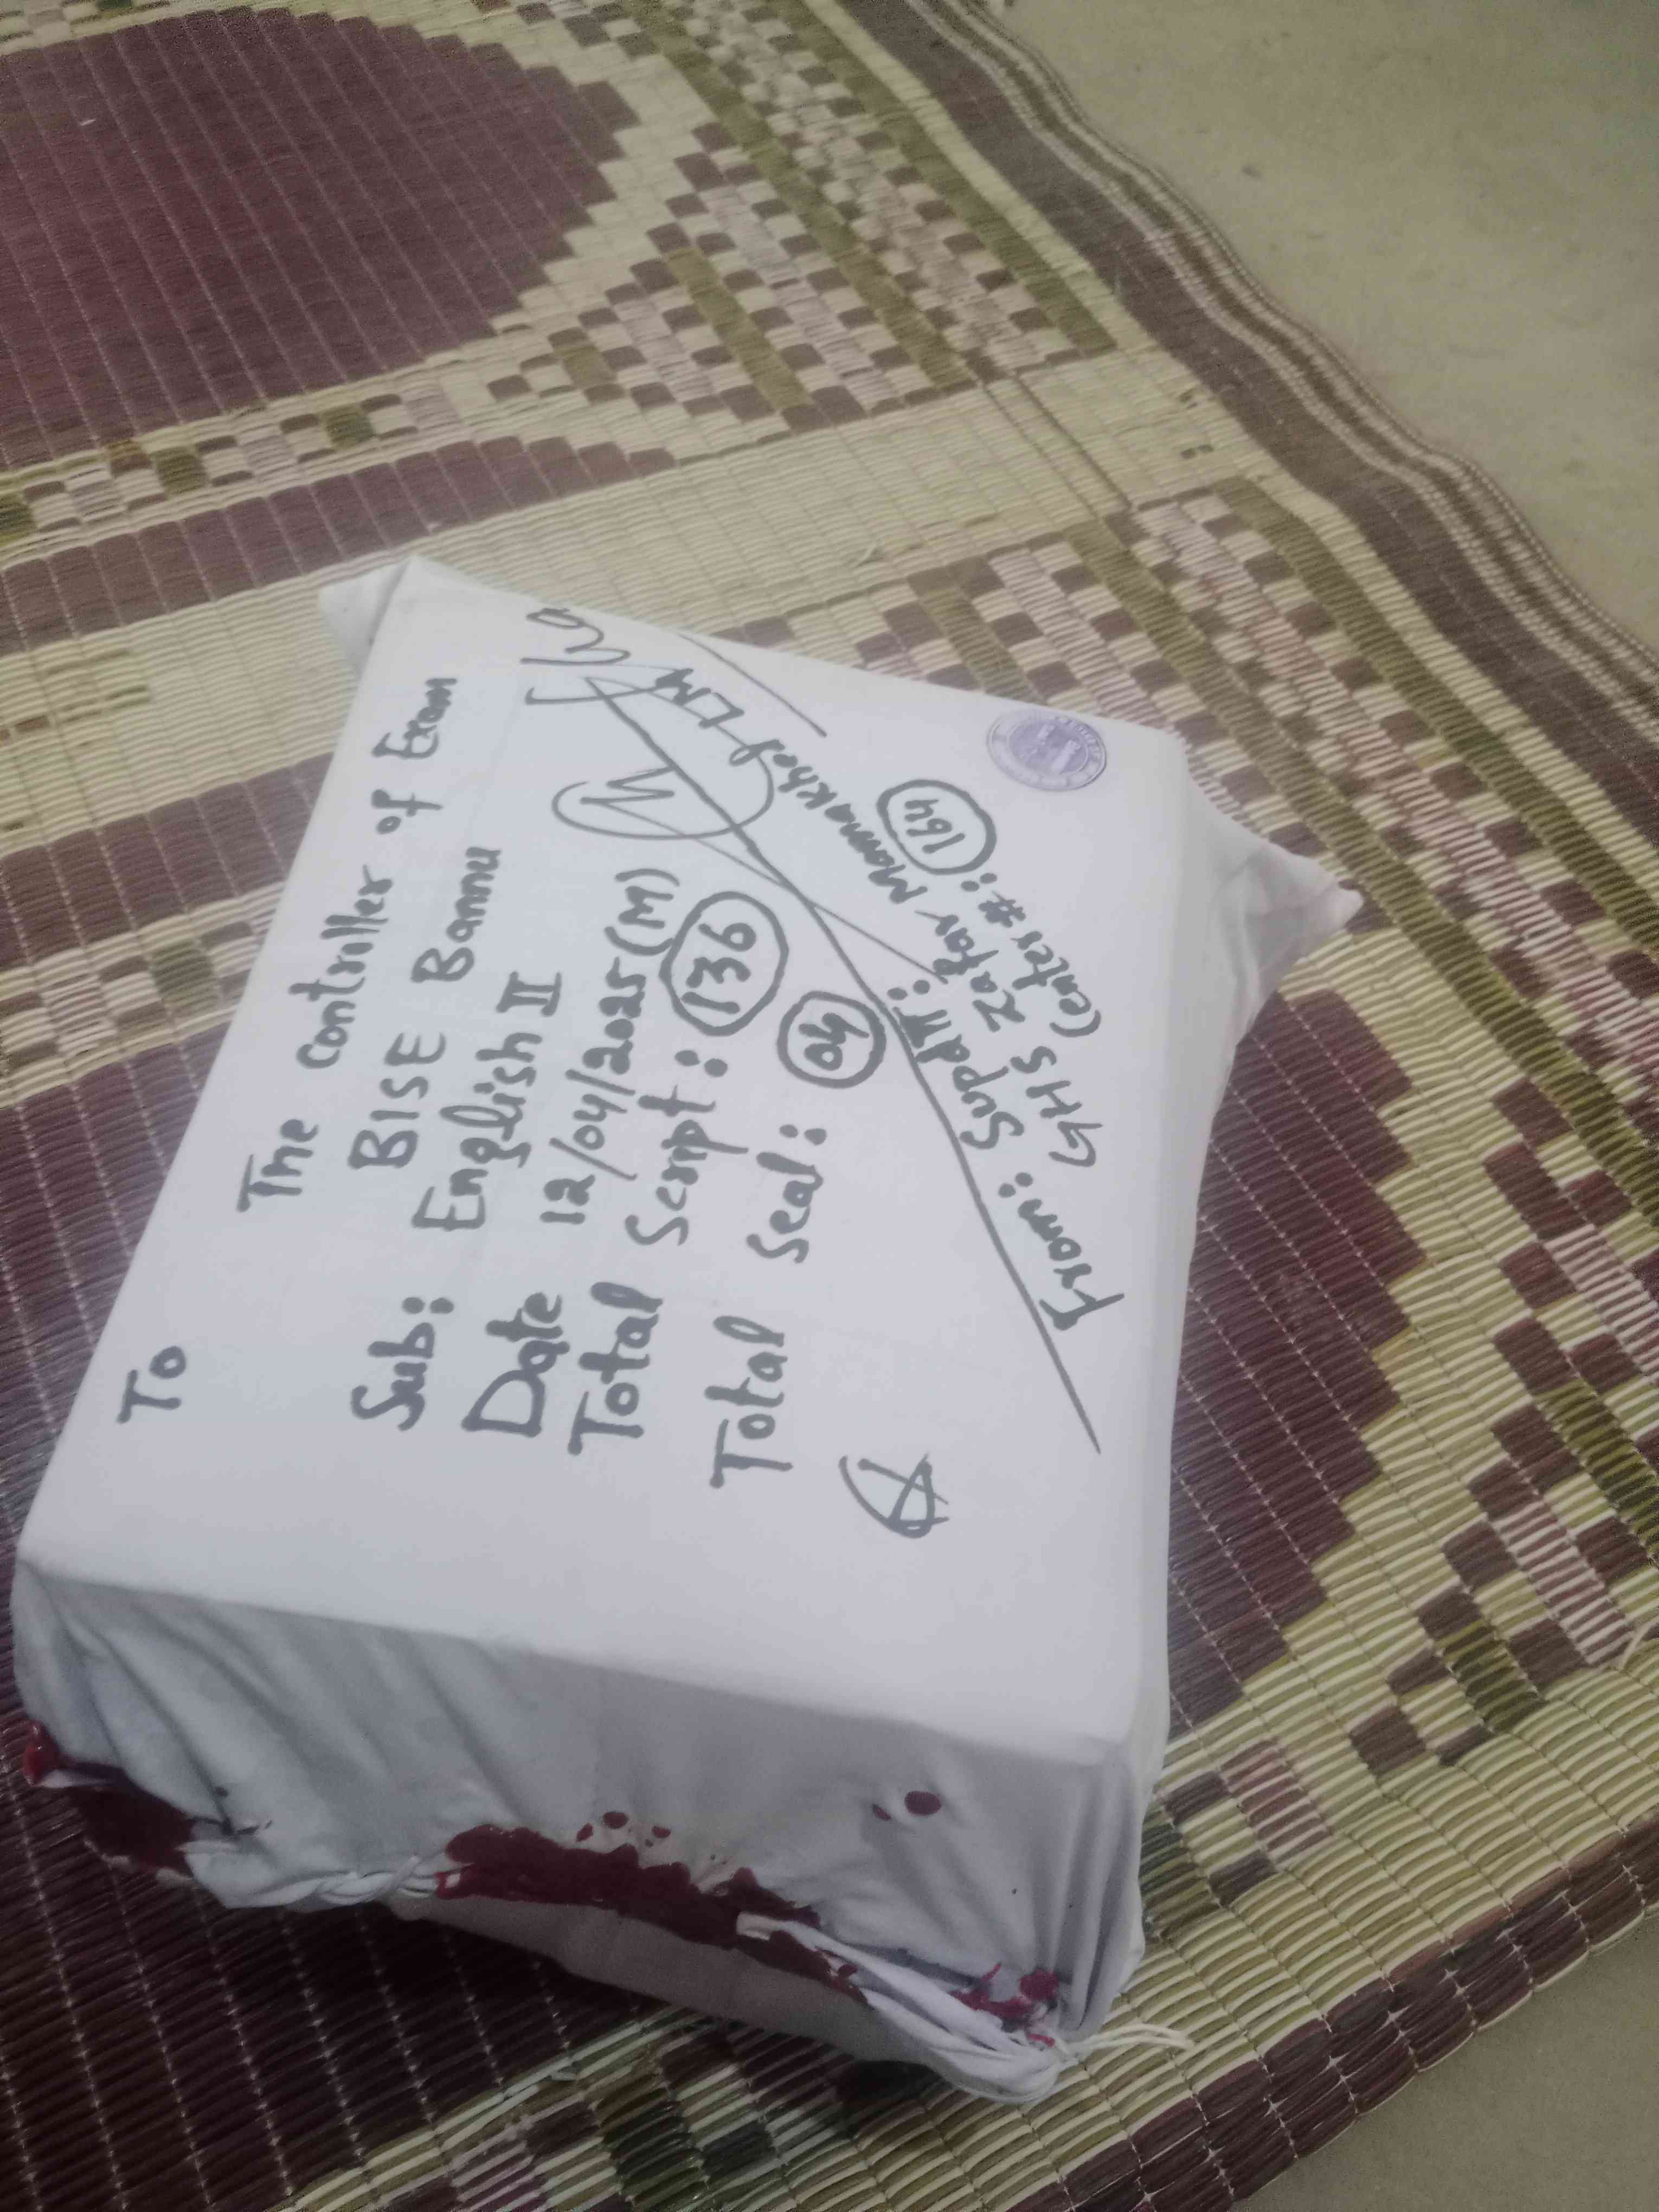 To
The Controller of Exam
BISE Bannu
Sub: English II
Date 12/04/2025 (M)
Total Script: 136
Total Seal: 04
From: Supdtt:
GHS Zafar Mamakhel LM
Center #: 164